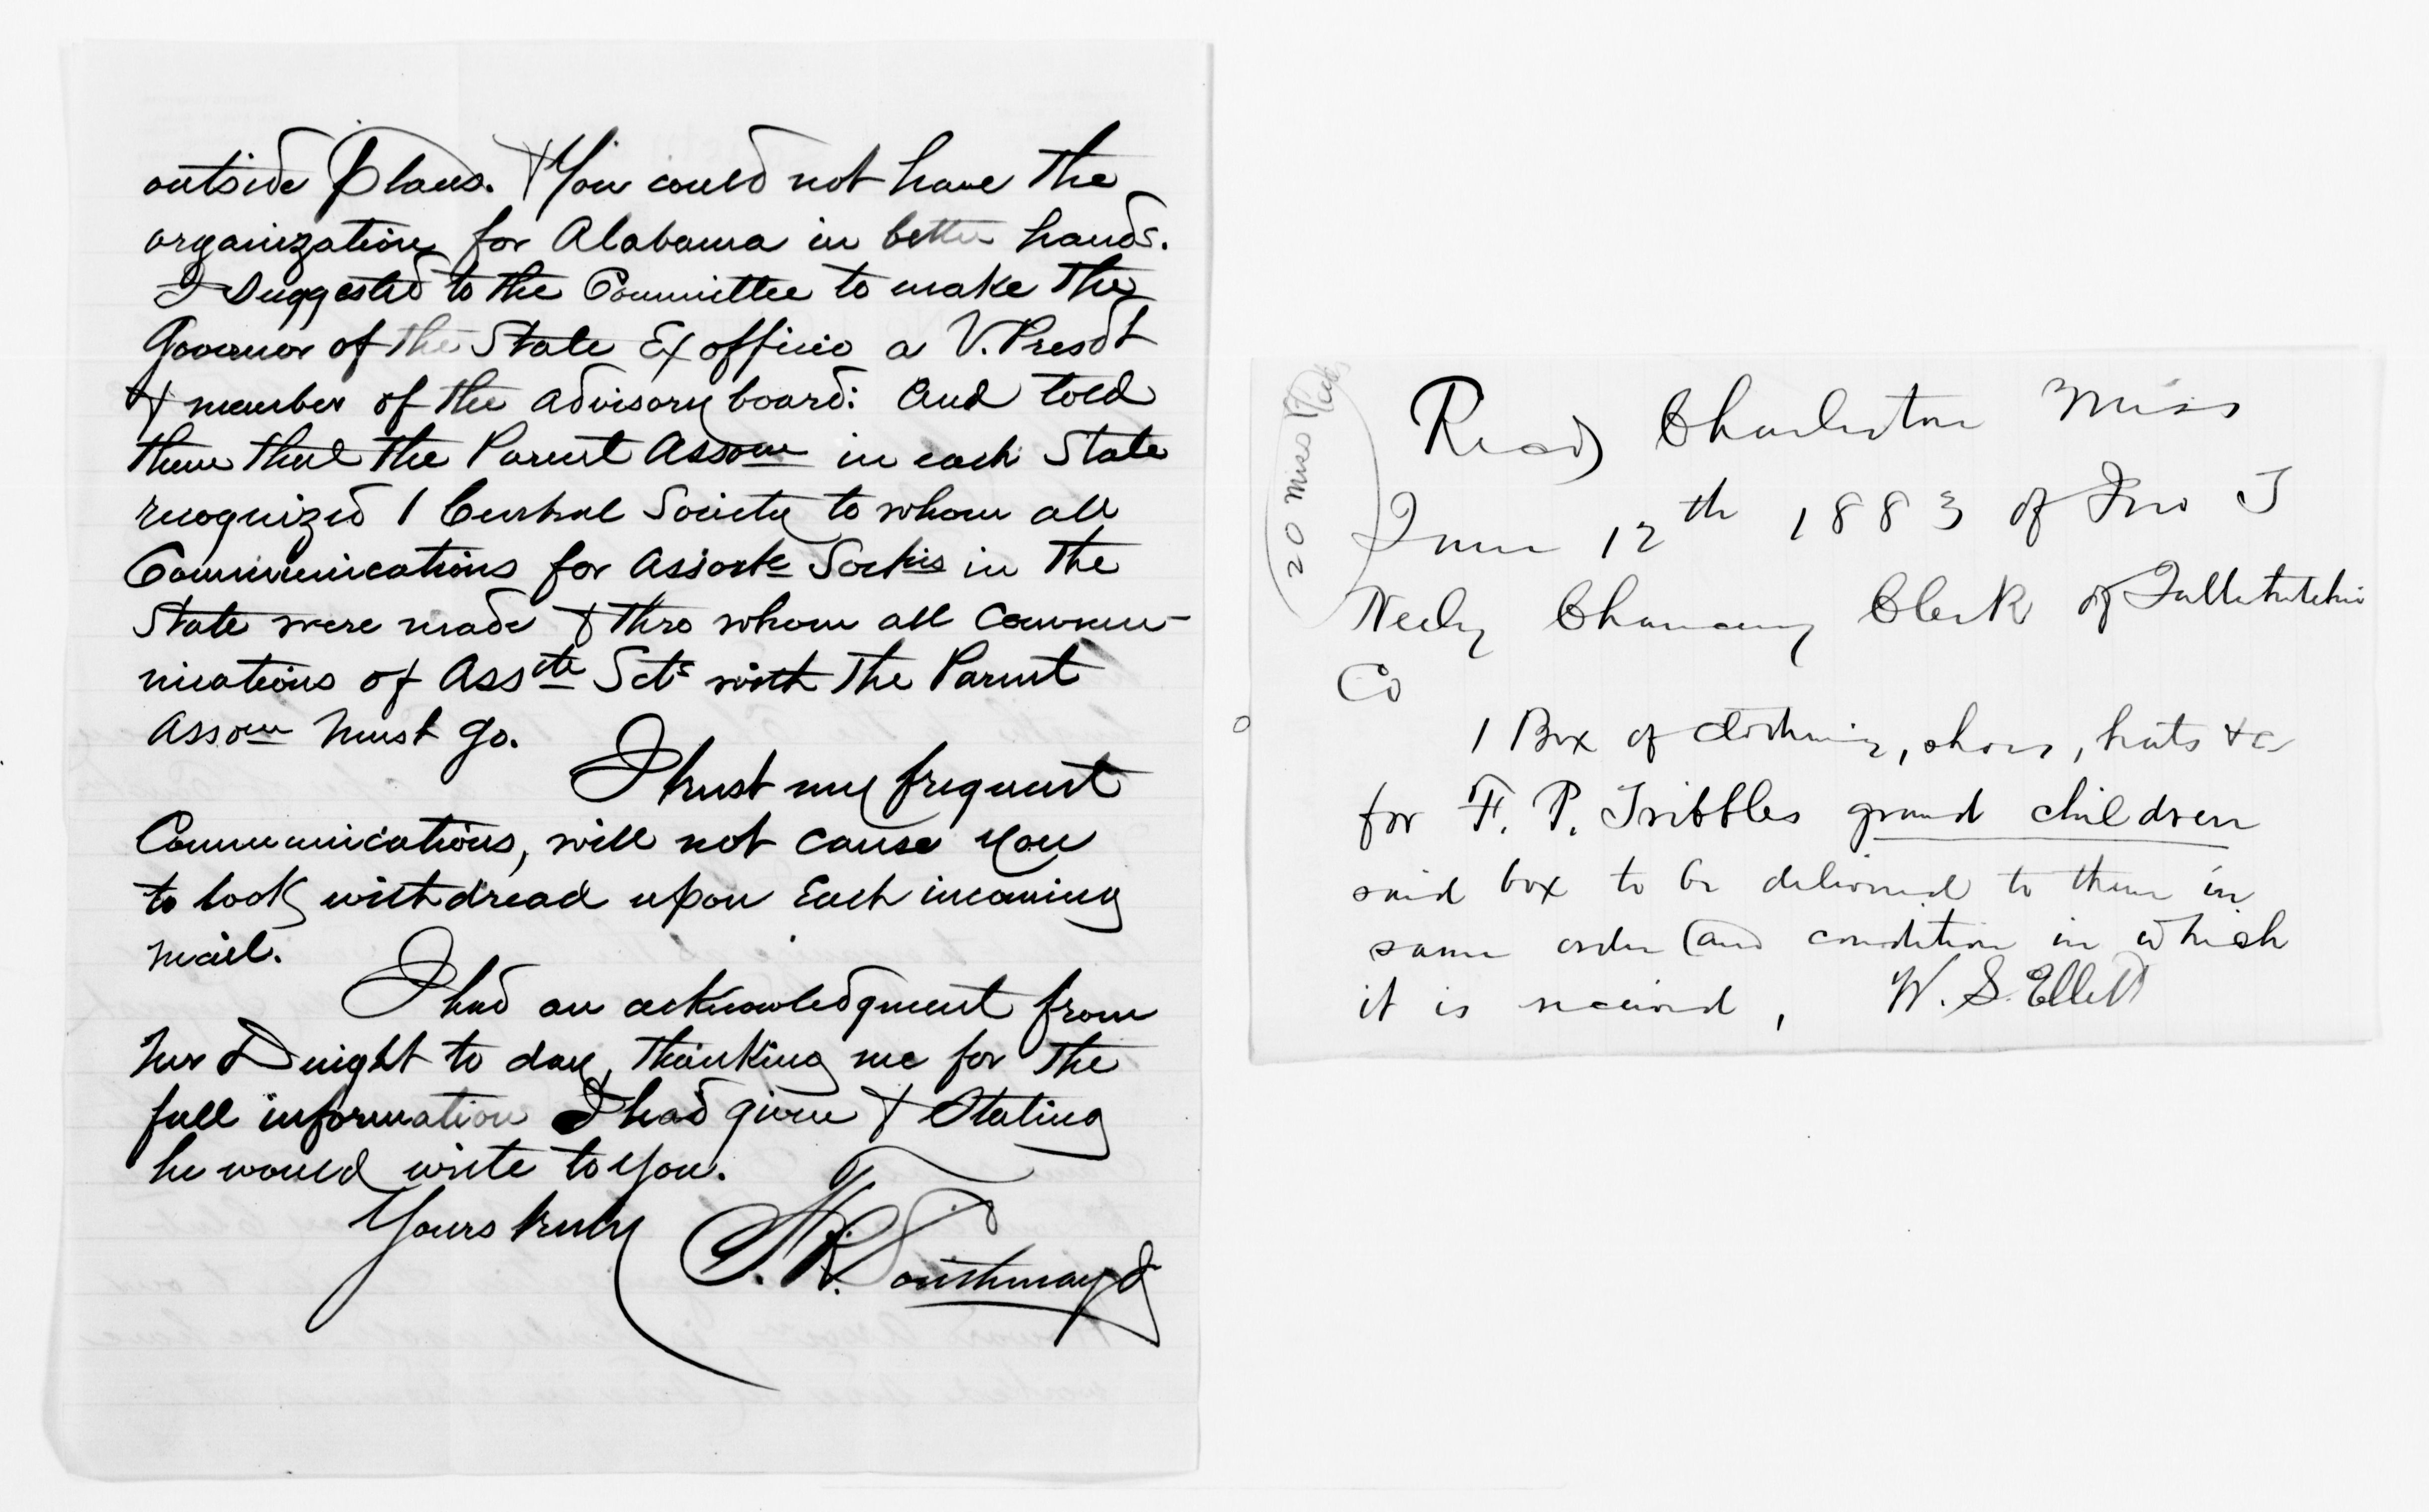 outside plans. & You could not have the
organization for Alabama in better hands.
I suggested to the Committee to make the
Governor of the State Ex officio a V. Presdt
& member of the advisory board: and told
them that the Parent Assocn in each State
recognized 1 Central Society to whom all
Communications for Assocte Socties in the
State were made & thro whom all commu-
nications of Asste Scts with the Parent
Assocn must go.
I trust my frequent
Communications, will not cause you
to look with dread upon Each incoming
mail.
I had an acknowledgment from
Mr Dwight to day, thanking me for the
full information I had given & stating
he would write to you.
Yours truly F. R. Southmayd
20 Miss
Recd Charleston Miss
June 12th 1883 of Jno T
Neely Chancery Clerk of Tallahatchie
Co
1 Box of clothing, shoes, hats &c
for F. P. Tribbles grand children
said box to be delivered to them in
same order and condition in which
it is received, W. S. Ellett